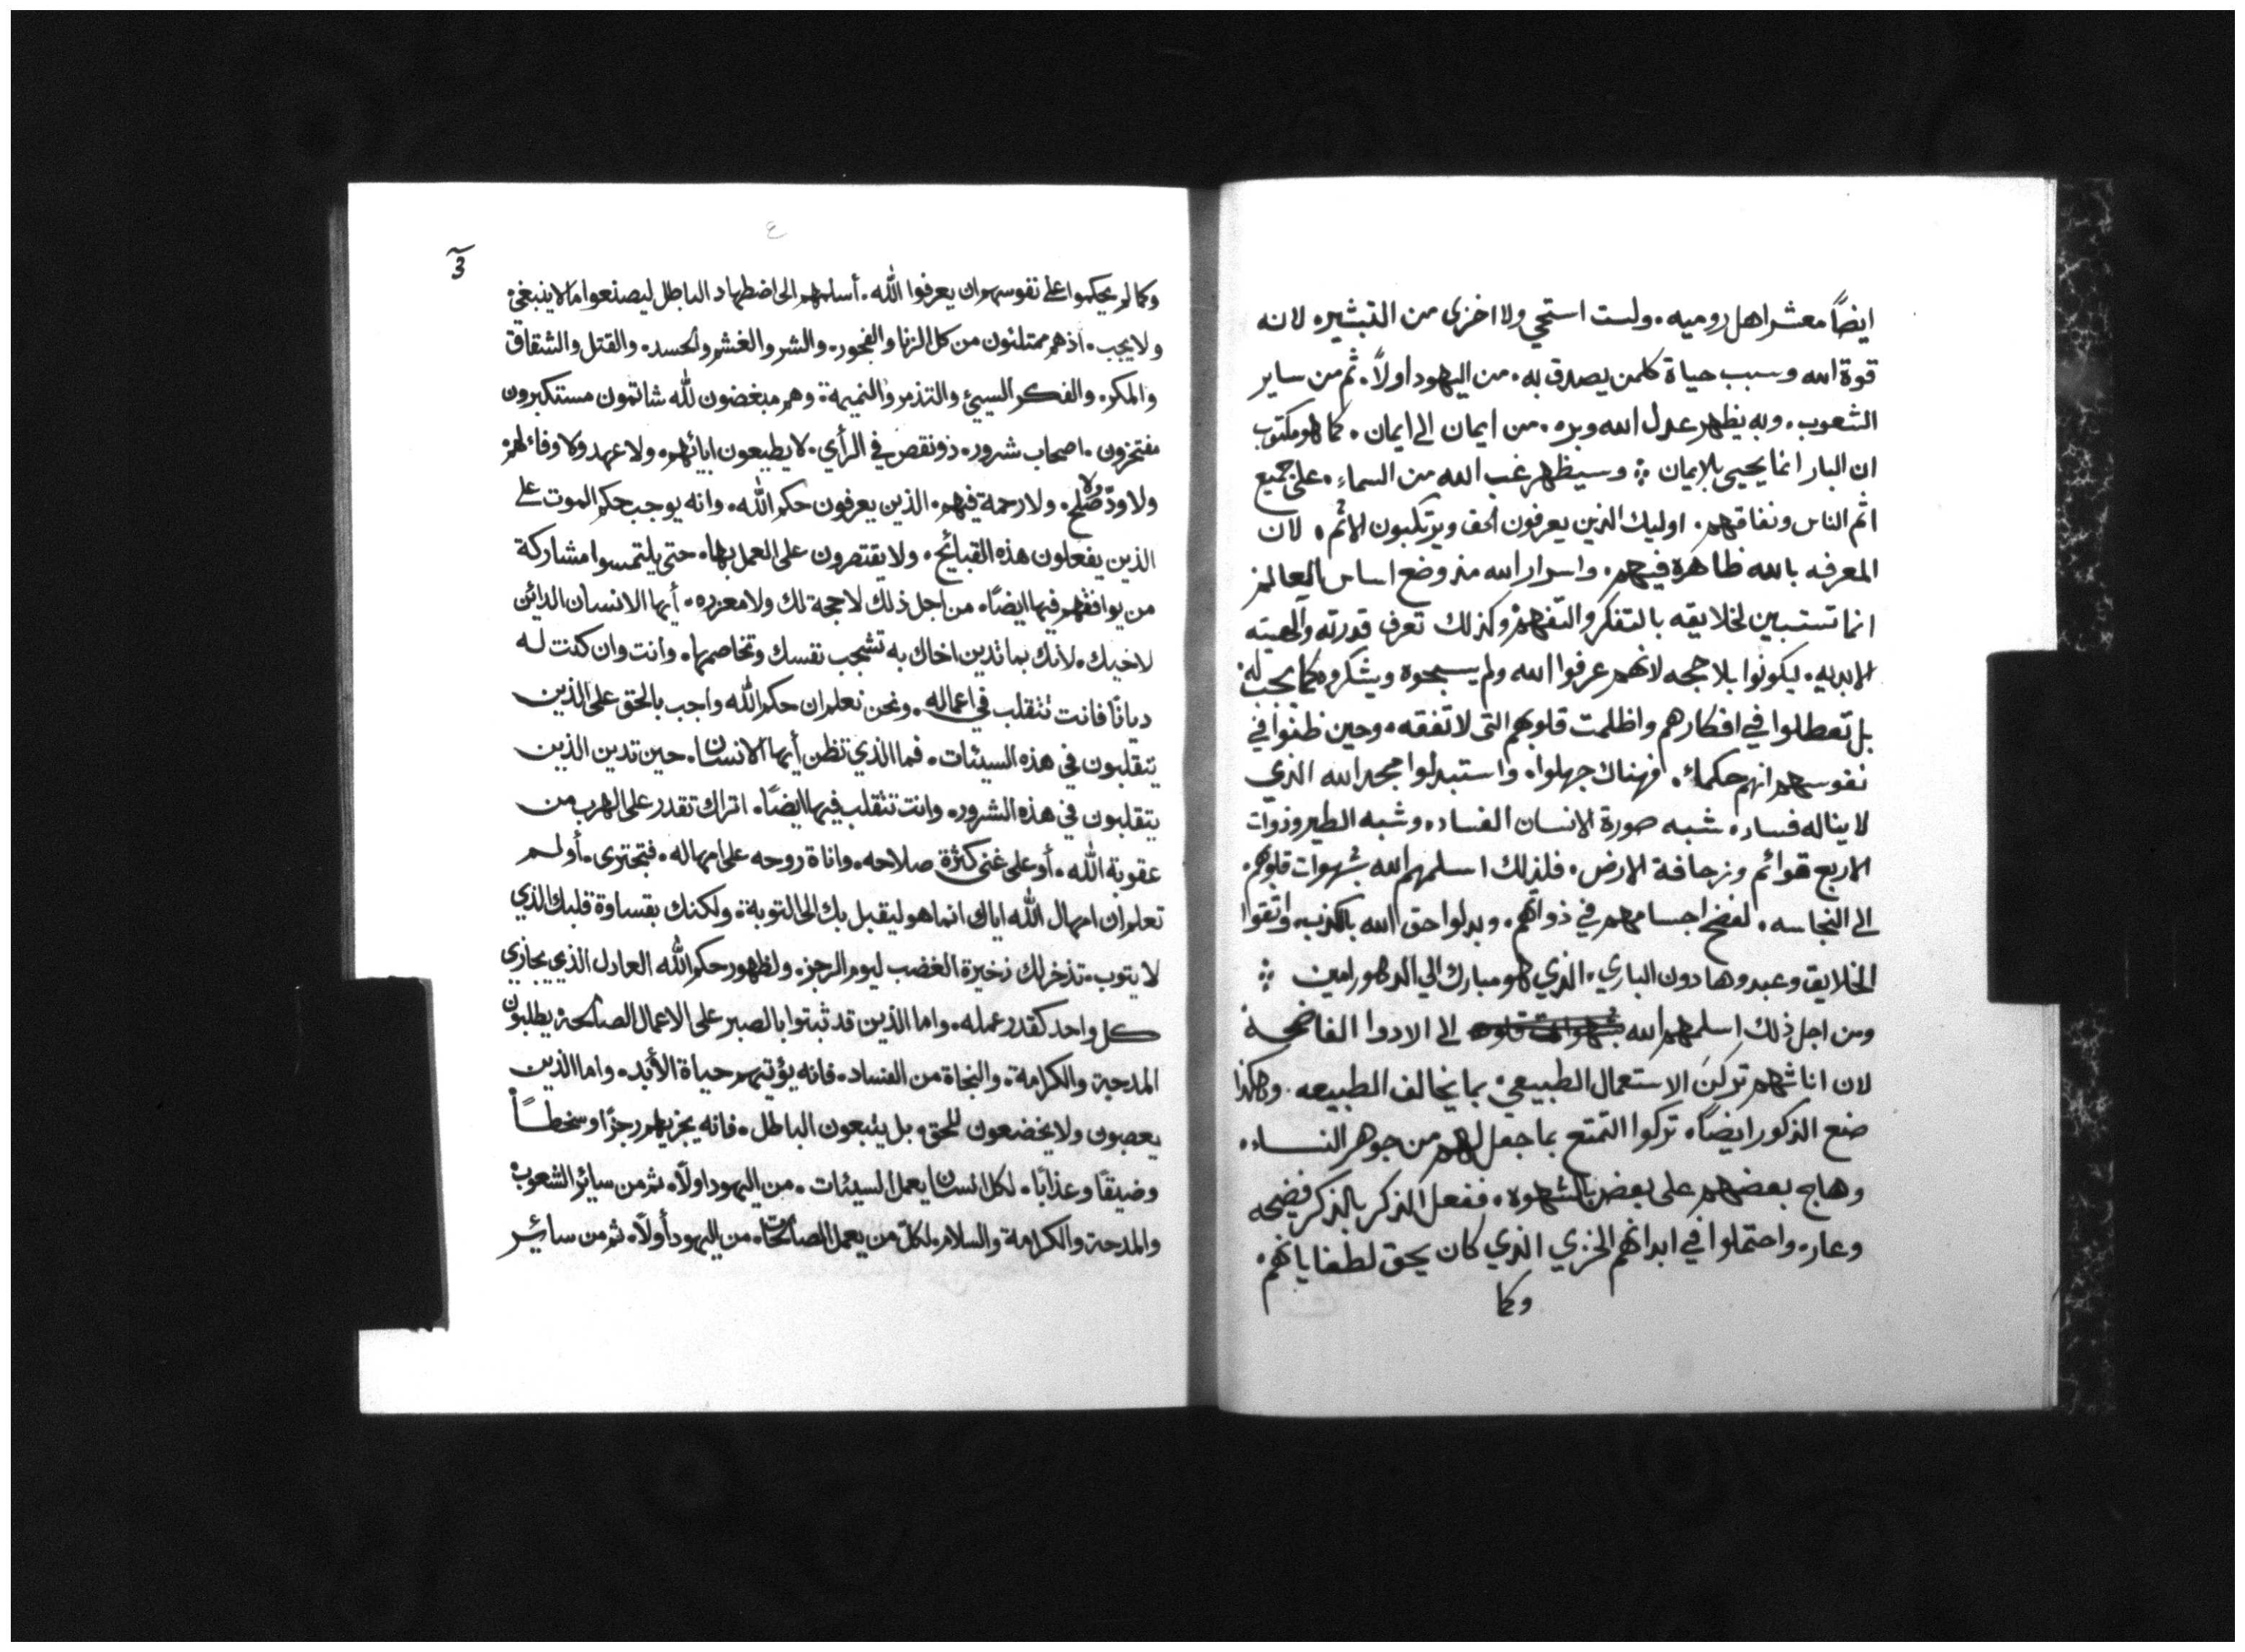 ايضاً معشر اهل روميه. ولست استحي ولا اخزى من التبشير. لانه
قوة الله وسبب حياة كلمن يصدق به. من اليهود اولاً. ثم من ساير
الشعوب. وبه يظهر عدل الله وبره. من ايمان الى ايمان. كما هو مكتوب
ان البار انما يحيى بلايمان ∴ وسيظهر غب الله من السماء. على جميع
اثم الناس ونفاقهم. اوليك الذين يعرفون الحق ويرتكبون الاثم. لان
المعرفه بالله ظاهرة فيهم. واسرار الله منذ وضع اساس العالم
انما تستبين لخلايقه بالتفكر والتفهم وكذلك تعرف قدرته والهيته
الابديه. ليكونوا بلا حجه لانهم عرفوا الله ولم يسبحوه ويشكروه كما يجب له.
بل تعطلوا في افكارهم واظلمت قلوبهم التى لا تفقه. وحين ظنوا في
نفوسهم انهم حكماء. فهناك جهلوا. واستبدلوا مجد الله الذي
لا يناله فساد. شبه صورة الانسان الفساد. وشبه الطير وذوات
الاربع قوائم وزحافة الارض. فلذلك اسلمهم الله بشهوات قلوبهم.
الى النجاسه. لفضح اجسامهم في ذواتهم. وبدلوا حق الله بالكذب. واتقوا
الخلايق وعبدوها دون الباري. الذي هو مبارك الي الدهور امين ∴
ومن اجل ذلك اسلمهم الله الى الادوا الفاضحة
لان اناثهم تركن الاستعمال الطبيعي. بما يخالف الطبيعه. وهكذا
صنع الذكور ايضاً. تركوا التمتع بما جعل لهم من جوهر النساء.
وهاج بعضهم على بعض بالشهوه. ففعل الذكر بالذكر فضيحه
وعار. واحتملوا في ابدانهم الخزي الذي كان يحق لطغيانهم.
وكما
٤
3
وكما لم يحكموا على نفوسهم ان يعرفوا الله. أسلمهم الى اضطهاد الباطل ليصنعوا ما لا ينبغي.
ولا يجب. اذ هم ممتلئون من كل الزنا والفجور. والشر والغش والحسد. والقتل والشقاق
والمكر. والفكر السيئ والتذمر والنميمة. وهم مبغضون لله شاتمون مستكبرون
مفتخرون. اصحاب شرور. ذو نقص في الرأي. لا يطيعون ابائهم. ولا عهد ولا وفاء لهم
ولا ودّ ولا صلح. ولا رحمة فيهم. الذين يعرفون حكم الله. وانه يوجب حكم الموت على
الذين يفعلون هذه القبائح. ولا يقتصرون على العمل بها. حتى يلتمسوا مشاركة
من يوافقهم فيها ايضًا. من اجل ذلك لا حجة لك ولا معذره. أيها الانسان الدائن
لاخيك. لأنك بما تدين اخاك به تشجب نفسك وتخاصمها. وانت وان كنت له
ديانًا فانت تتقلب في اعماله. ونحن نعلم ان حكم الله واجب بالحق على الذين
يتقلبون في هذه السيئات. فما الذي تظن أيها الانسان. حين تدين الذين
يتقلبون في هذه الشرور. وانت تتقلب فيها ايضًا. اتراك تقدر على الهرب من
عقوبة الله. أو على غنى كثرة صلاحه. واناة روحه على امهاله. فتجترى. أولم
تعلم ان امهال الله اياك انما هو ليقبل بك الى التوبة. ولكنك بقساوة قلبك الذي
لا يتوب. تذخر لك ذخيرة الغضب ليوم الرجز. ولظهور حكم الله العادل الذي يجازي
كل واحد كقدر عمله. واما الذين قد ثبتوا بالصبر على الاعمال الصالحة يطلبون
المدحة والكرامة. والنجاة من الفساد. فانه يؤتيهم حياة الأبد. واما الذين
يعصون ولا يخضعون للحق. بل يتبعون الباطل. فانه يجزيهم رجزًا وسخطًا
وضيقًا وعذابًا. لكل انسان يعمل السيئات. من اليهود اولًا. ثم من سائر الشعوب
والمدحة والكرامة والسلام. لكل من يعمل الصالحات. من اليهود أولًا. ثم من سائر